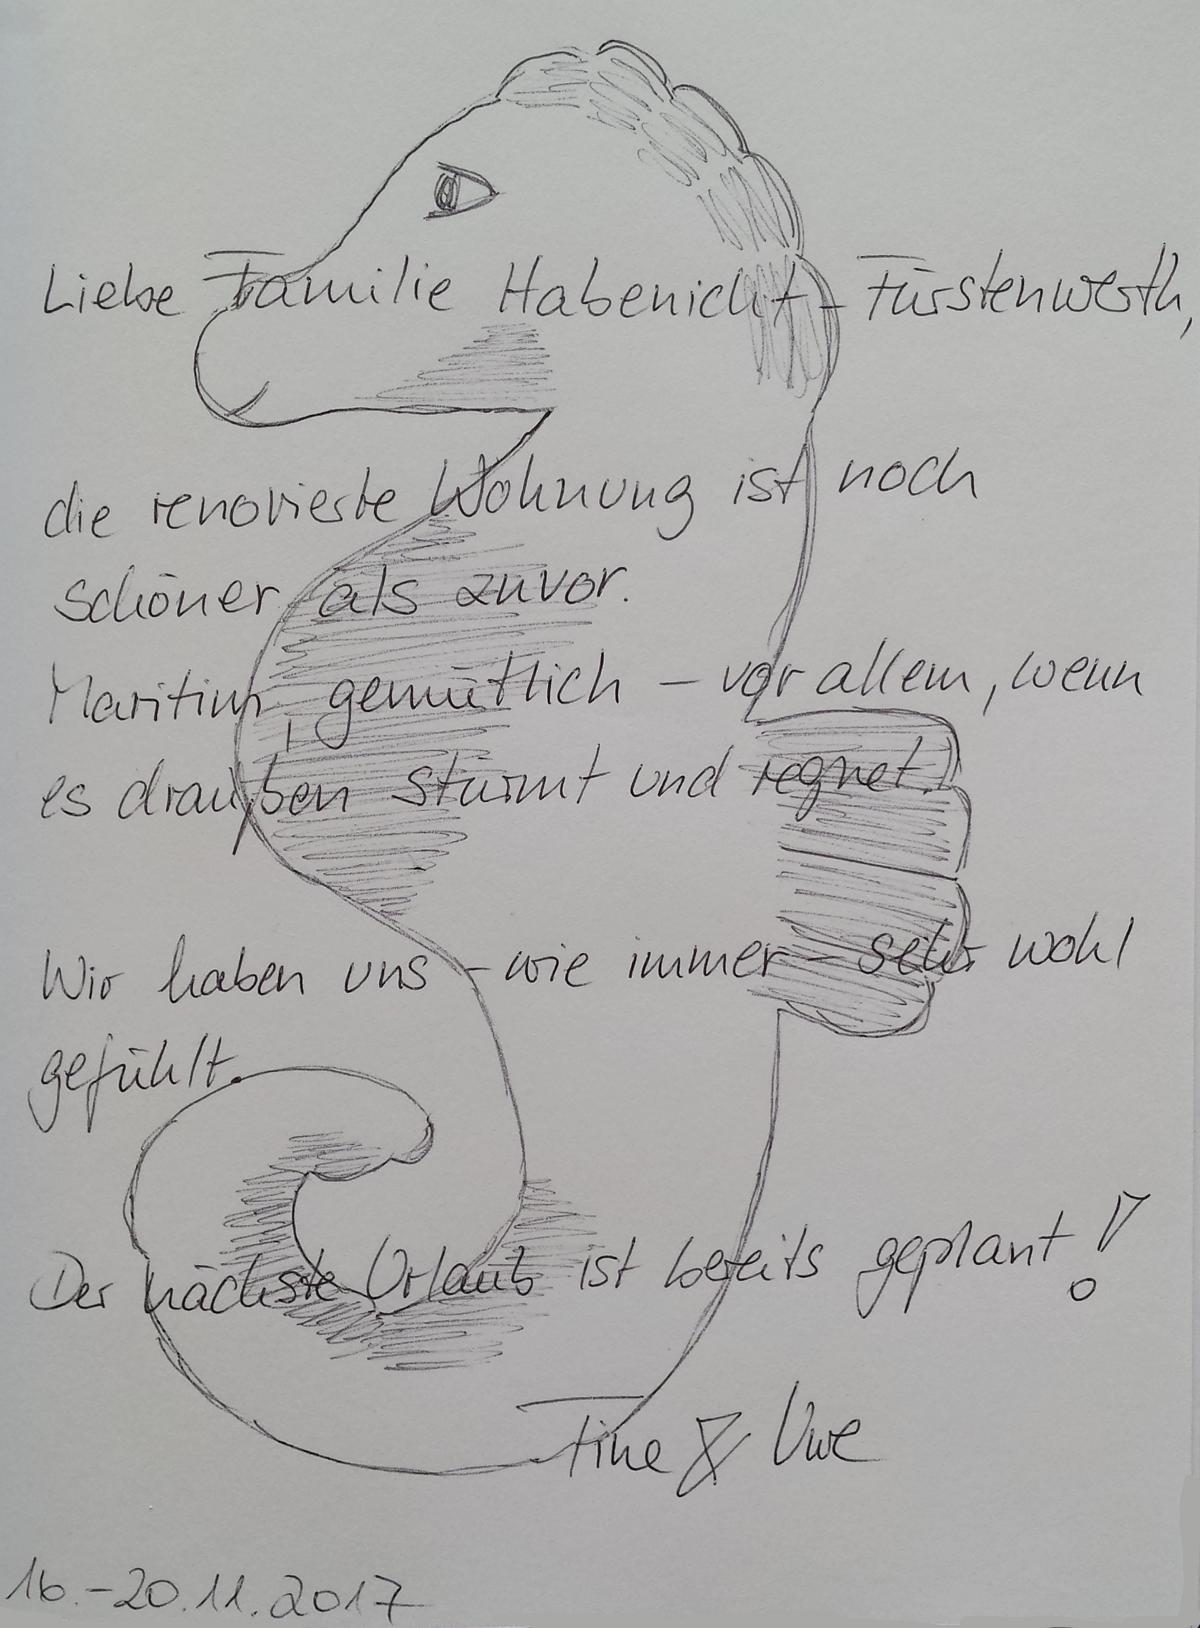 Liebe Familie Habenicht-Fürstenwerth,
die renovierte Wohnung ist noch
schöner als zuvor.
Maritim, gemütlich – vor allem, wenn
es draußen stürmt und regnet!
Wir haben uns – wie immer – sehr wohl
gefühlt.
Der nächste Urlaub ist bereits geplant!
Tine & Uwe
16.-20.11.2017